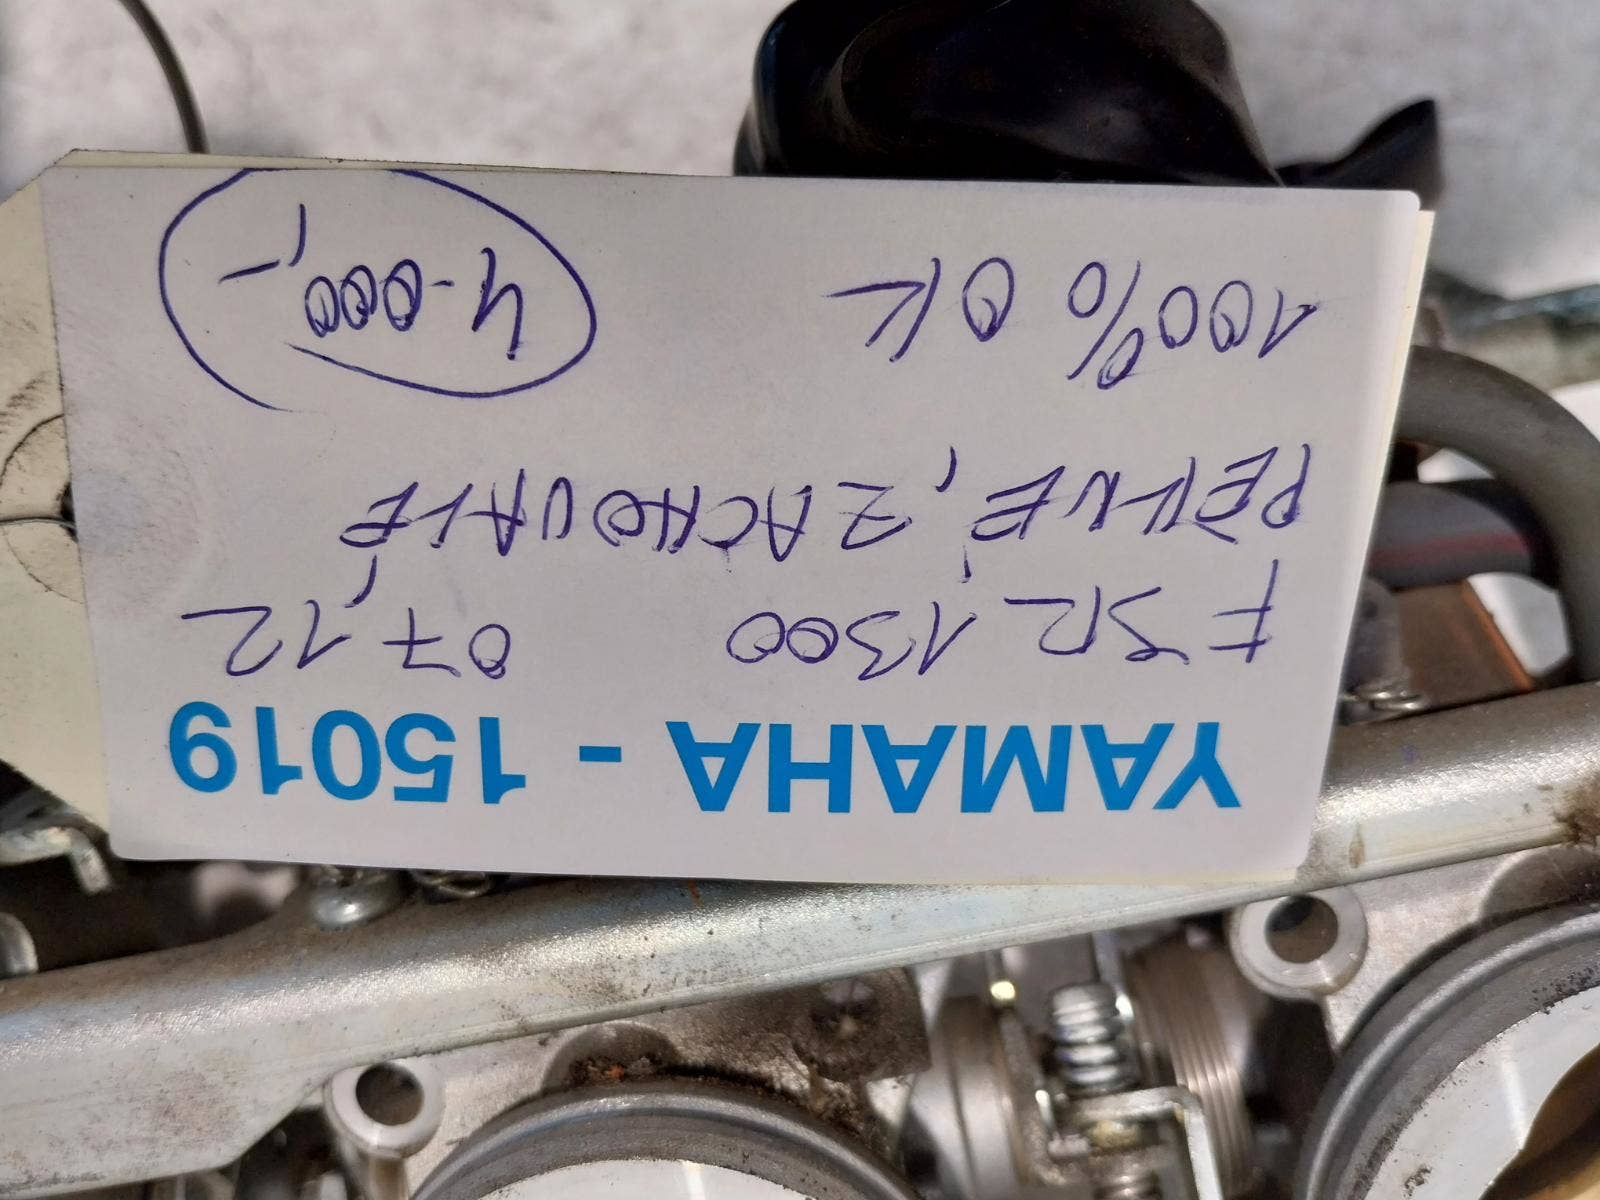 YAMAHA - 15019
FJR 1300 07,12
PĚKNÉ, ZACHOVALÉ
100% OK 4.000,-